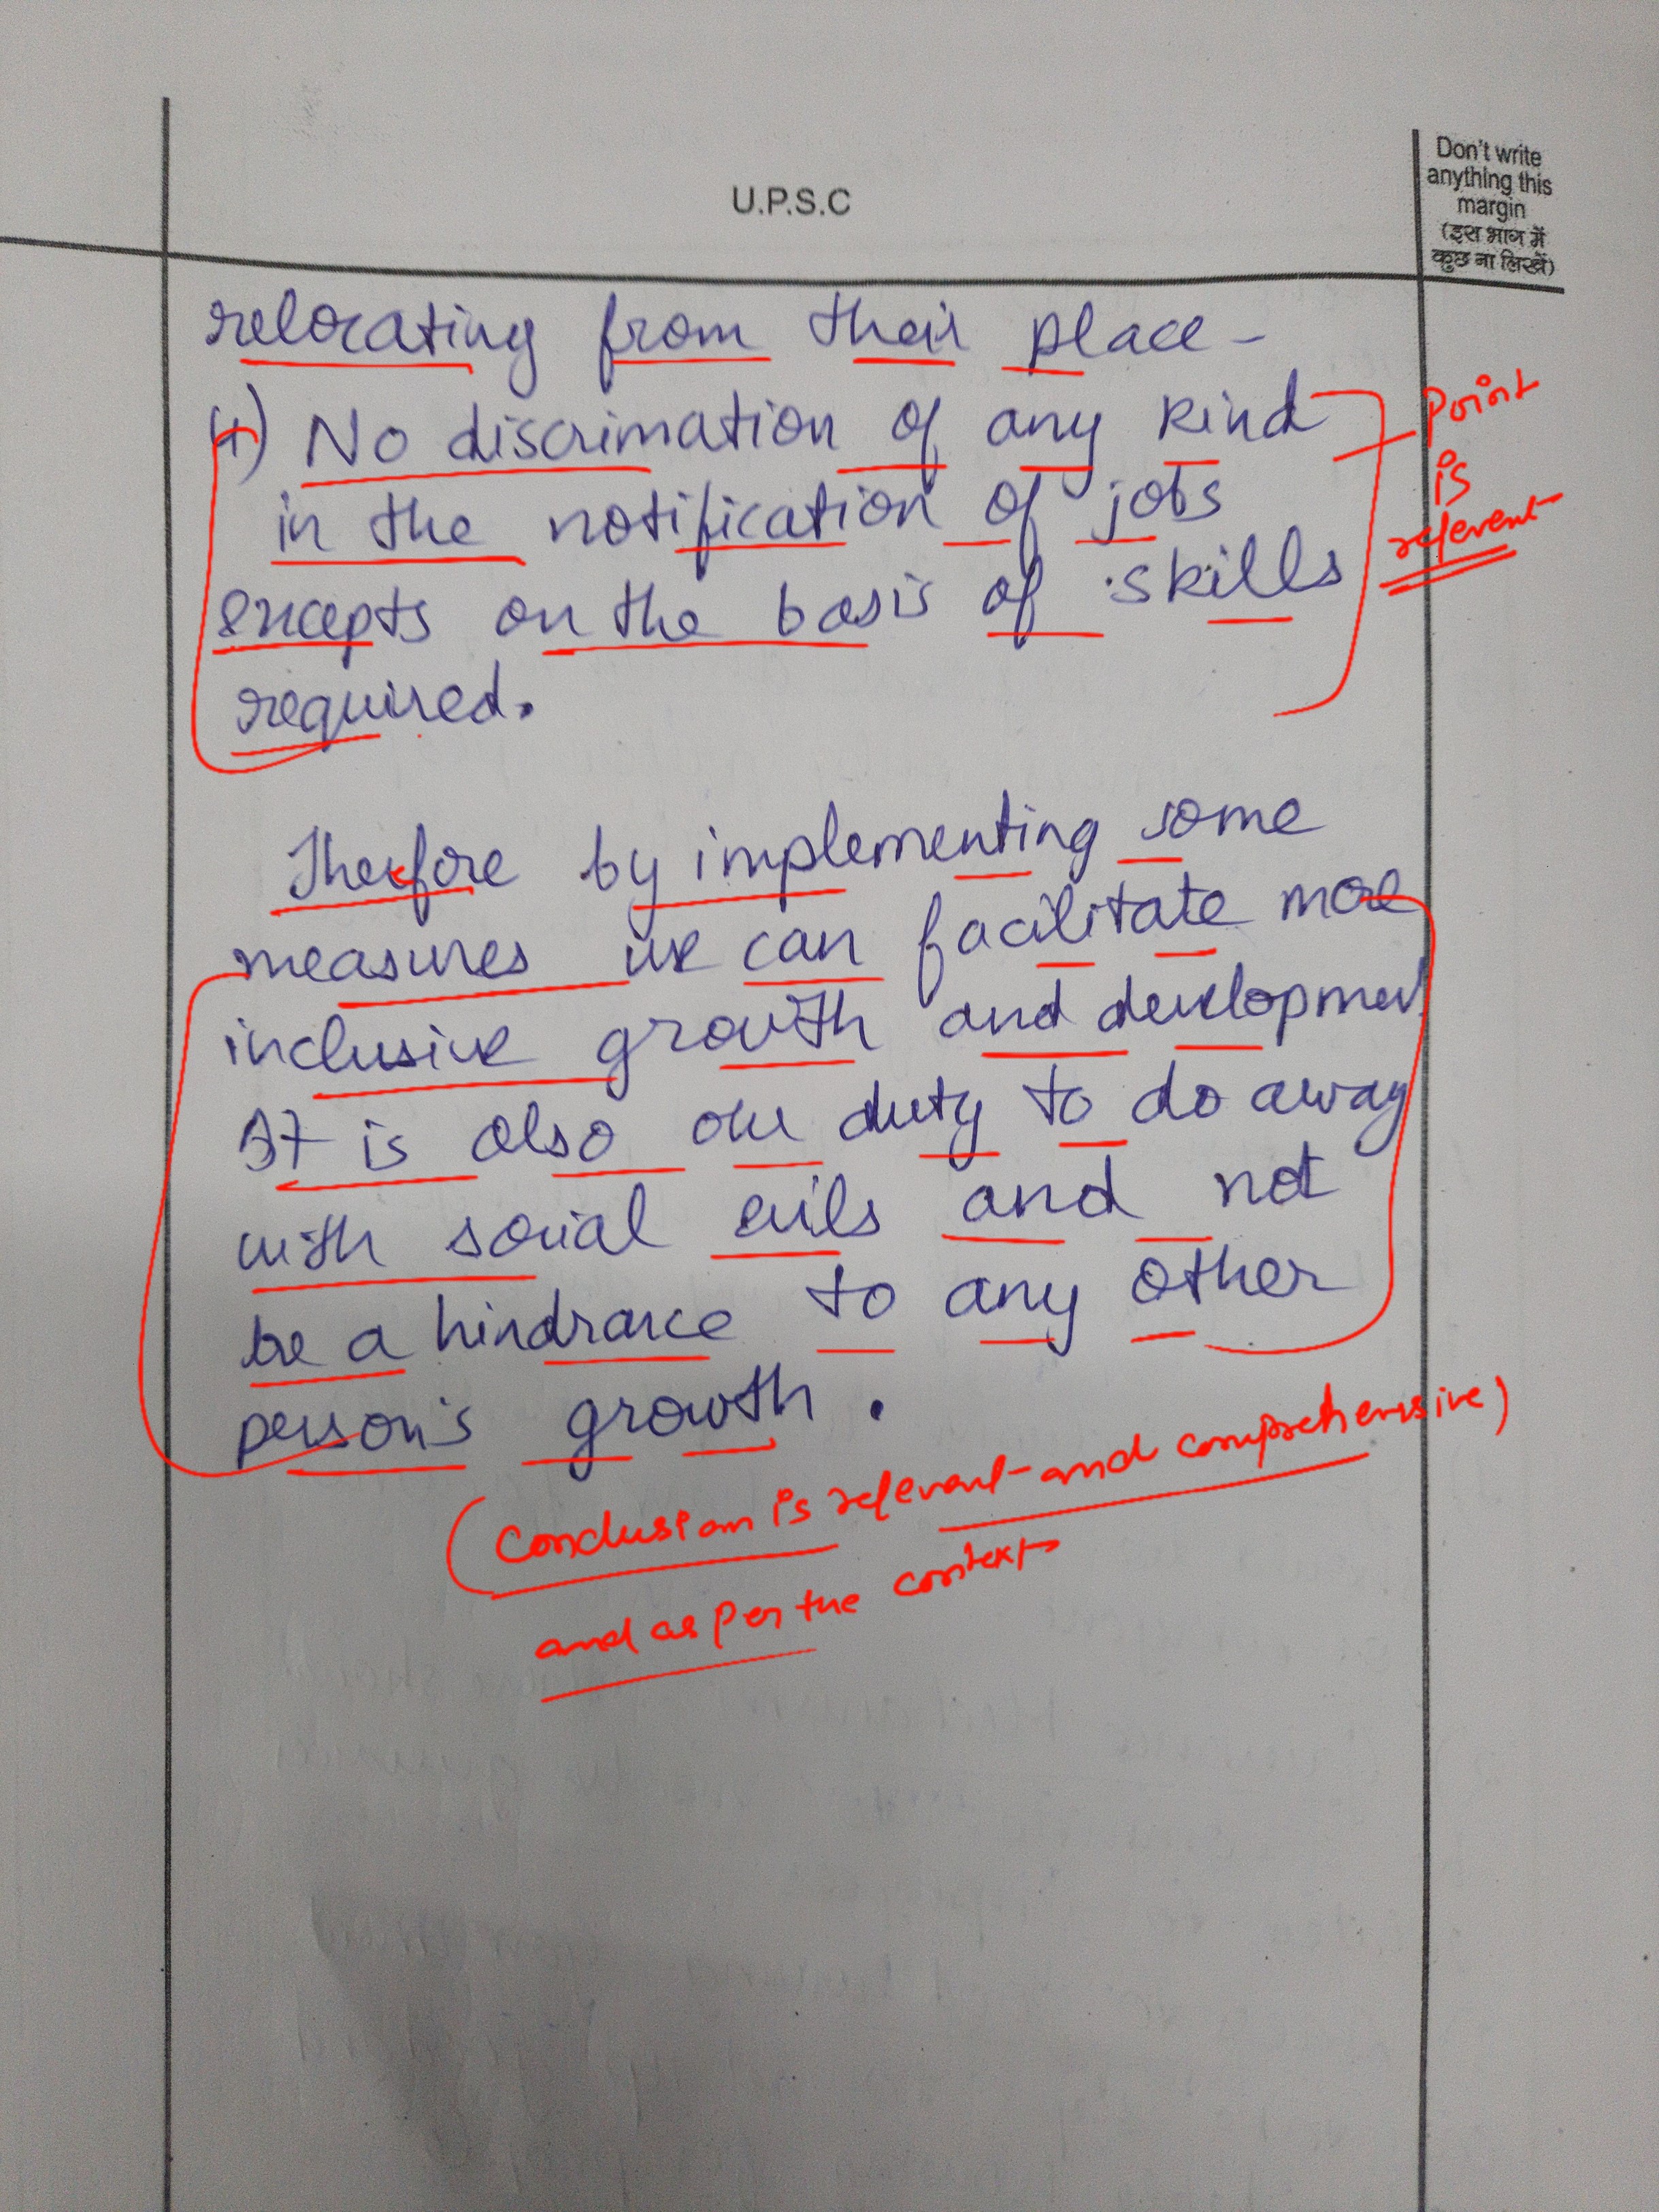 U.P.S.C
Don't write
anything this
margin
(इस भाग में
कुछ ना लिखें)
relocating from their place -
4) No discrimation of any kind
in the notification of jobs
excepts on the basis of skills
required.
Point
is
relevent
Therefore by implementing some
measures we can facilitate more
inclusive growth and development
It is also our duty to do away
with social evils and not
be a hindrance to any other
person's growth.
(Conclusion is relevant and comprehensive)
and as per the context